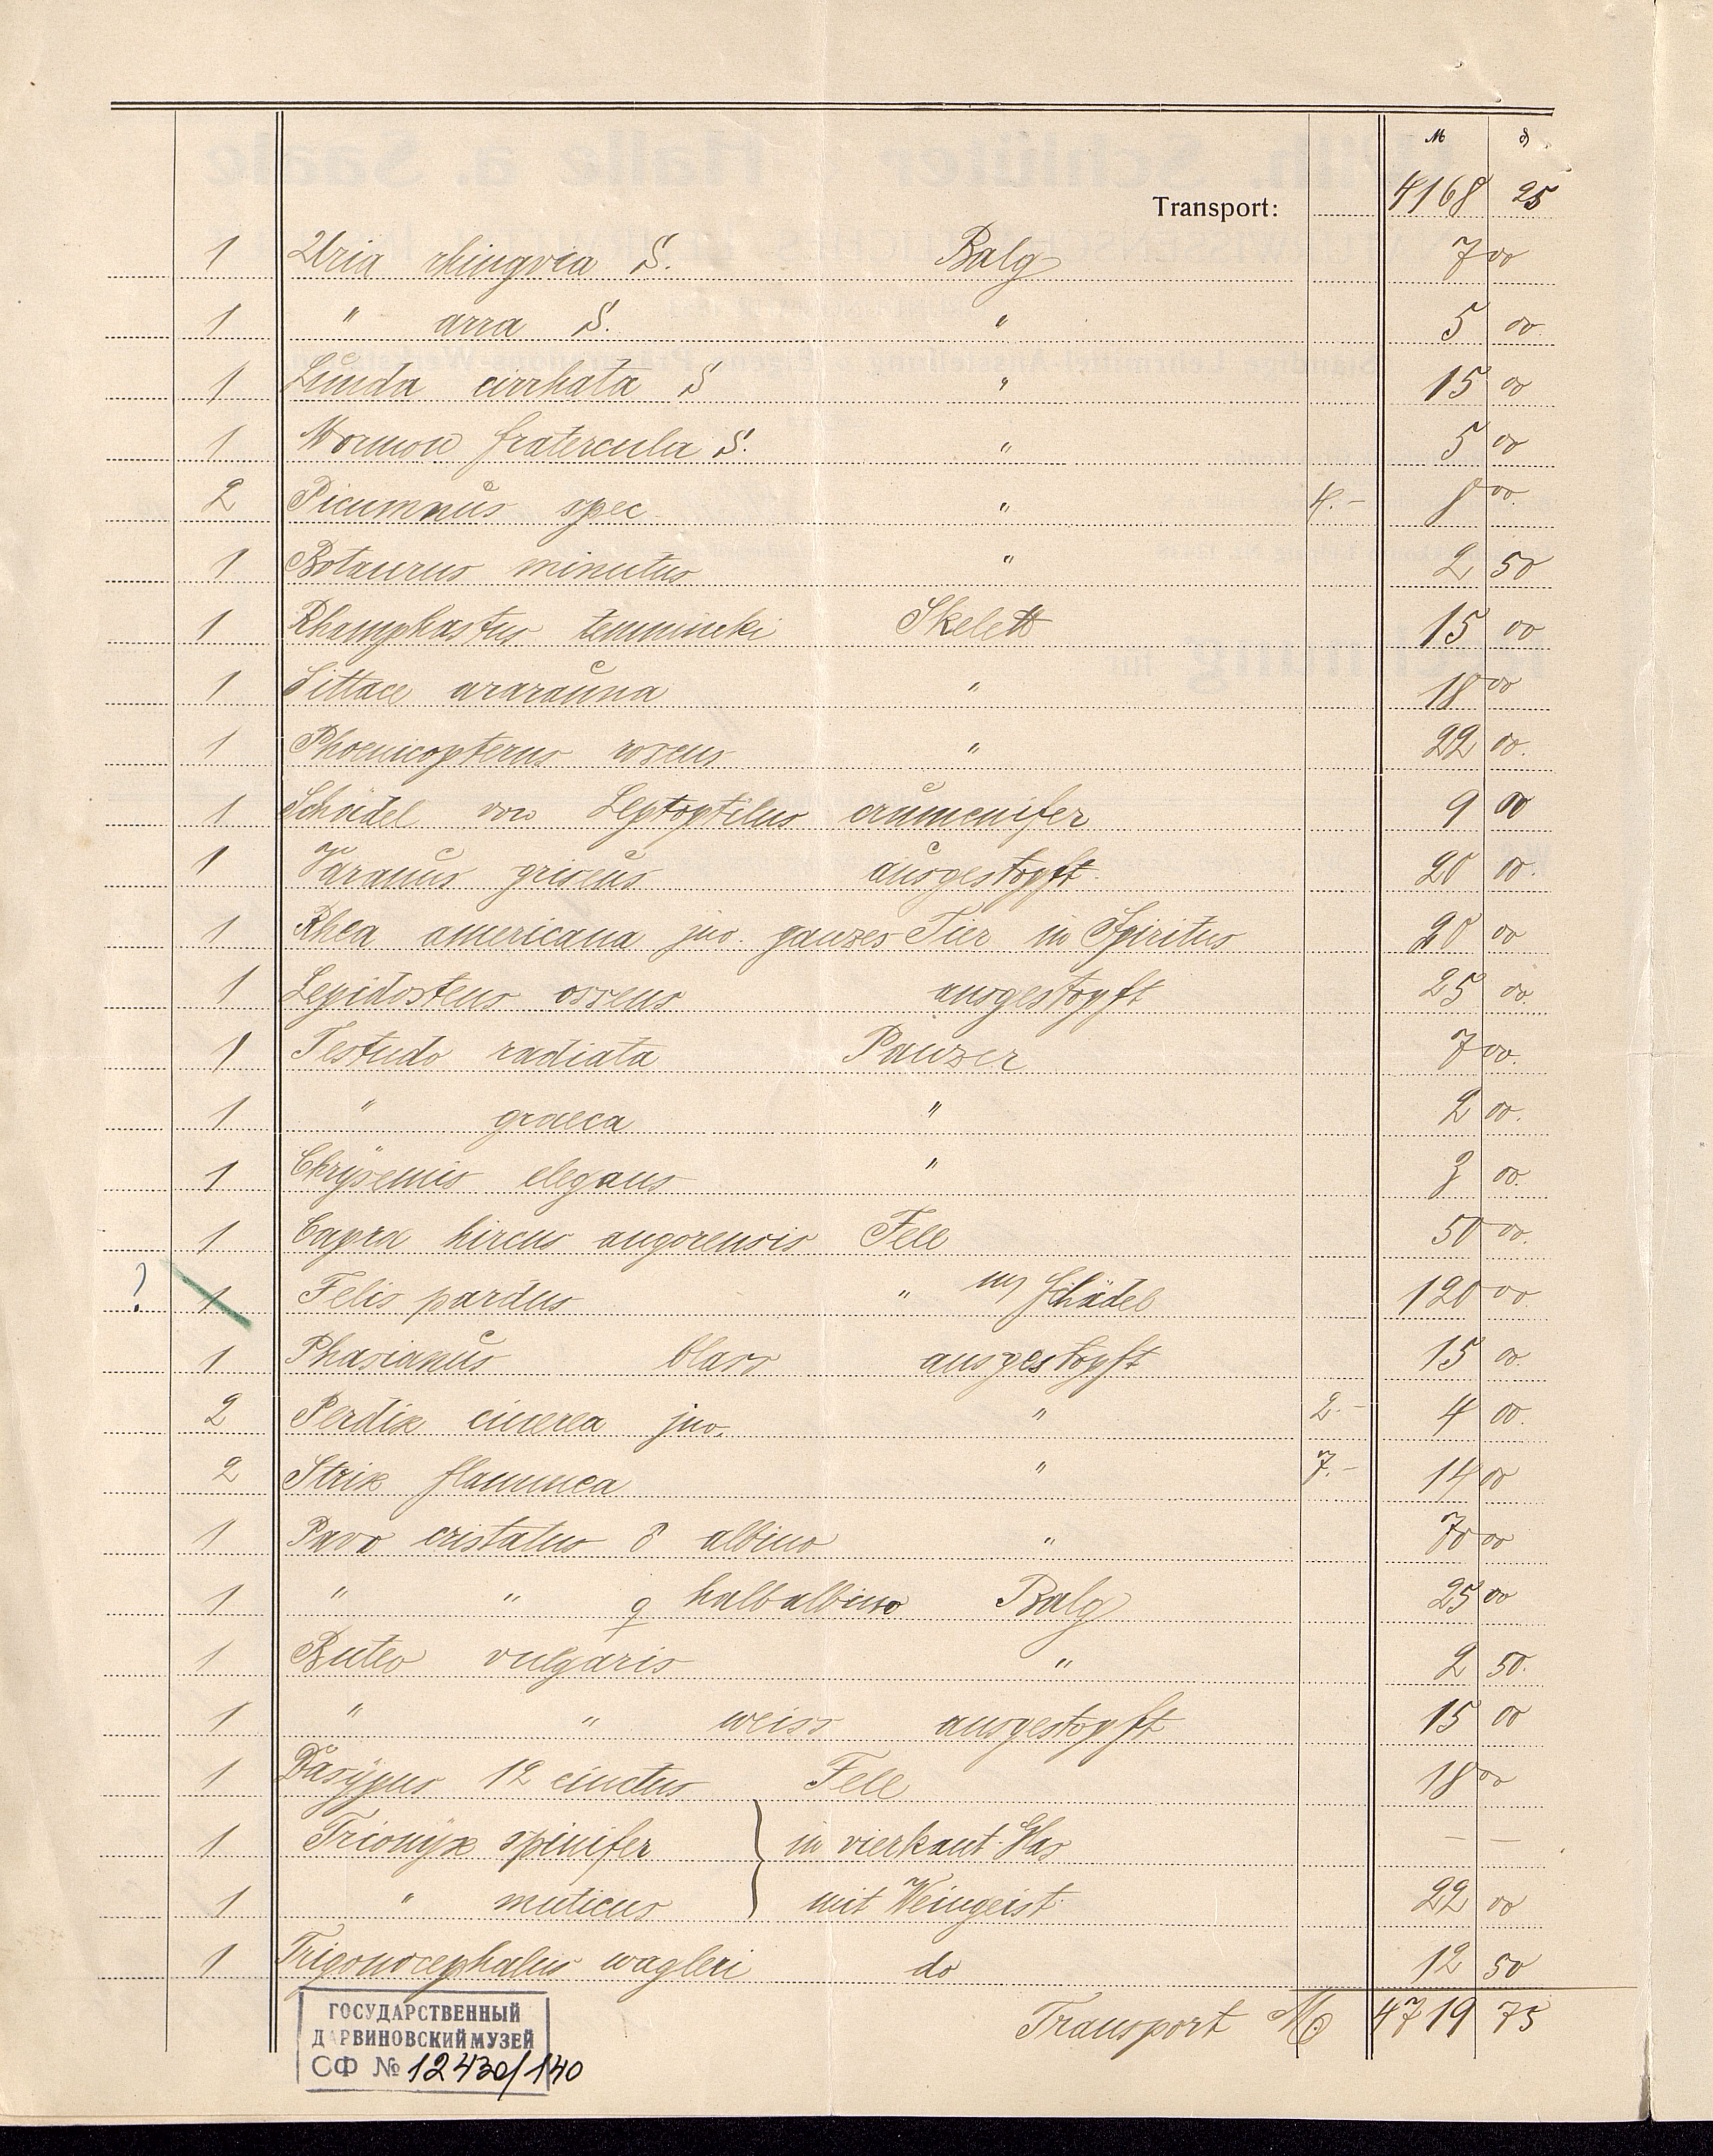 M ₰
Transport: 4168 25
1 Uria rhingvia S. Balg 7 00
1 " arra S. " 5 00
1 Lunda cirrhata S " 15 00
1 Mormon fratercula S. " 5 00
2 Picumnus spec " 4.- 8 00
1 Botaurus minutus " 2 50
1 Rhamphastus temmincki Skelett 15 00
1 Sittace ararauna " 18 00
1 Phoenicopterus roseus " 22 00
1 Schädel von Leptoptilus crumenifer 9 00
1 Varanus griseus ausgestopft 20 00
1 Rhea americana juv. ganzes Tier in Spiritus 20 00
1 Lepidosteus osseus ausgestopft 25 00
1 Testudo radiata Panzer 7 00
1 " graeca " 2 00
1 Chrysemis elegans " 3 00
1 Capra hircus angorensis Fell 50 00
? 1 Felis pardus " Schädel 120 00
1 Phasianus blass ausgestopft 15 00
2 Perdix cinerea juv. " 2.- 4 00
2 Strix flammea " 7.- 14 00
1 Pavo cristatus ♂ albino " 70 00
1 " " ♀ halbalbino Balg 25 00
1 Buteo vulgaris " 2 50
1 " " weiss ausgestopft 15 00
1 Dasypus 12 cinctus Fell 18 00
1 Trionyx spinifer } in vierkant. Glas — —
1 " muticus } mit Weingeist 22 00
1 Trigonocephalus wagleri do 12 50
Transport M 4719 75
ГОСУДАРСТВЕННЫЙ
ДАРВИНОВСКИЙ МУЗЕЙ
СФ № 12430/140